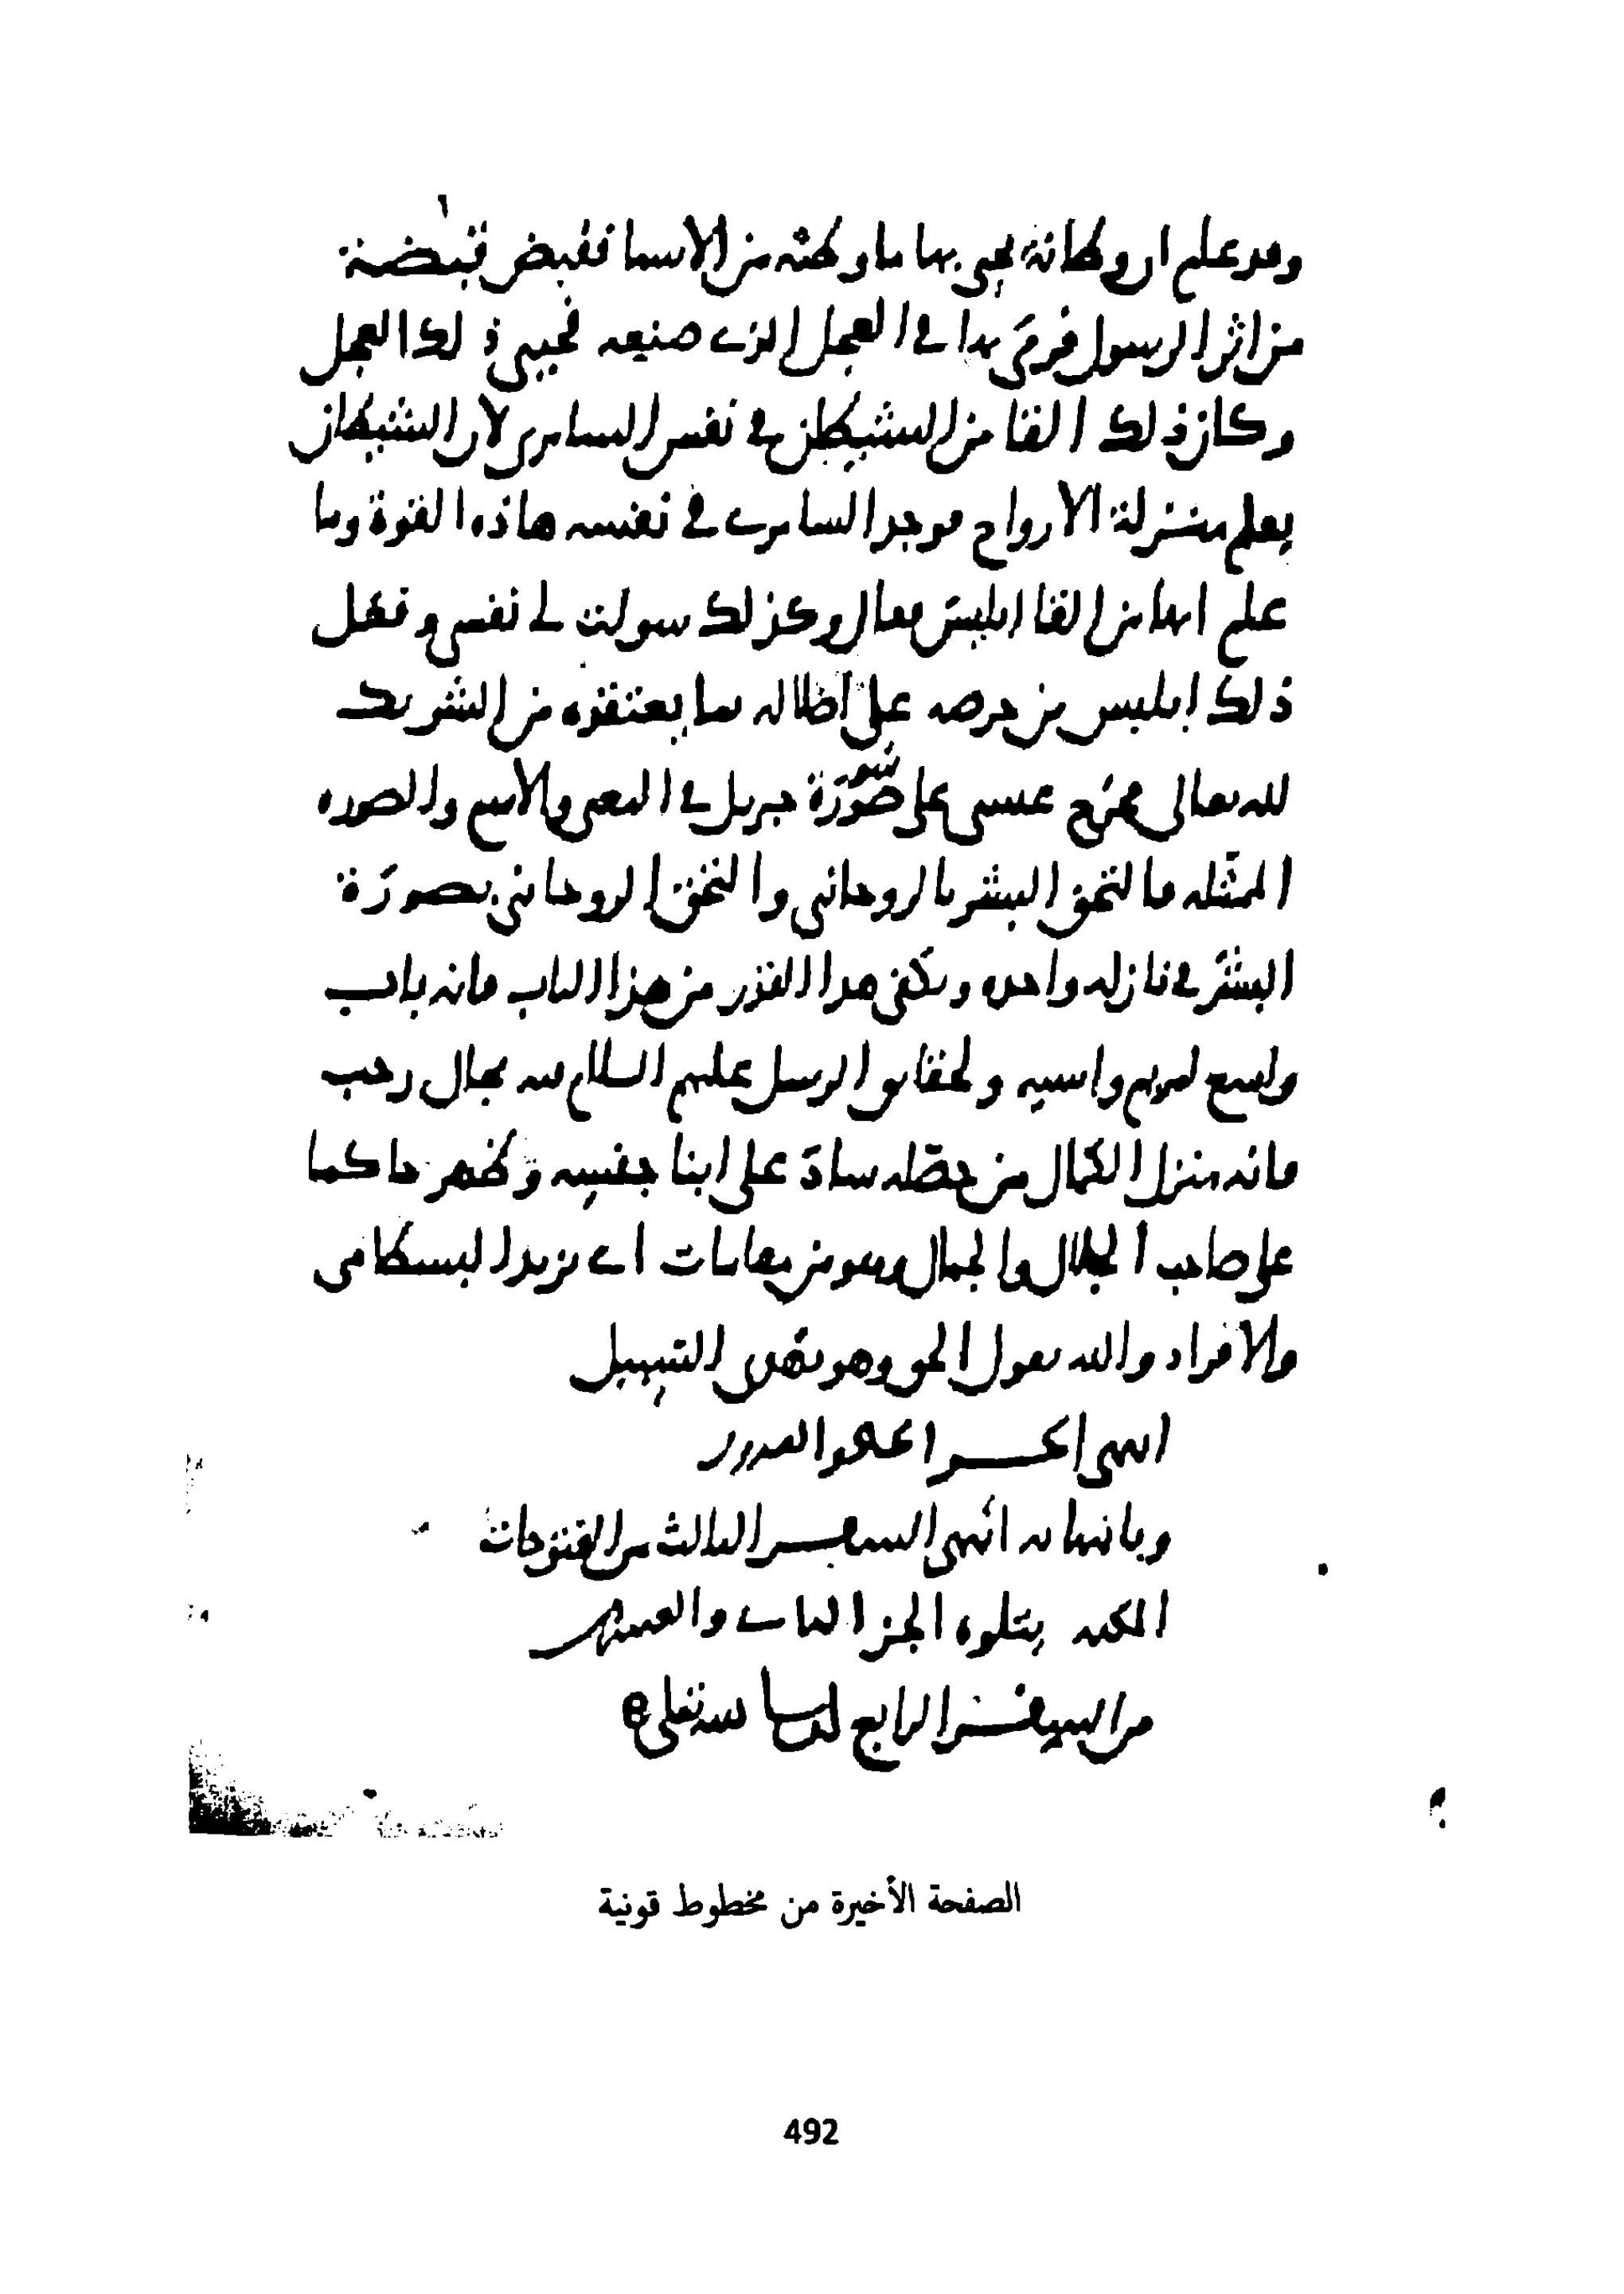 وقد علم ان وطأته يحيى بها ما وطئه من الاشيا فقبض قبضة
من اثر الرسول فرمى بها في العجل الذي صنعه فحيي ذلك العجل
وكان ذلك القا من الشيطان في نفس السامري لان الشيطان
يعلم منزلة الارواح فوجد السامري في نفسه هاذه القوة وما
علم انها من القا ابليس فقال وكذلك سولت لي نفسي وفعل
ذلك ابليس من حرصه على اظلاله بما يعتقده من الشريك
لله تعالى فخرج عيسى على صورة جبريل في المعنى والاسم والصورة
الممثله فالتحق البشر بالروحاني والتحق الروحاني بصورة
البشر في نازلة واحده ويكفي هذا القدر من هذا الباب فانه باب
واسع لمريم واسيه ولحقايق الرسل عليهم السلام فيه مجال رحب
فانه منزل الكمال من حصّله ساد على ابنا جنسه وظهر حاكما
على صاحب الجلال والجمال وهو من مقامات ابي يزيد البسطامي
والافراد والله يقول الحق وهو يهدي السبيل
انتهى الجز
وبانتهايه انتهى السفر الثالث من الفتوحات
المكيه يتلوه الجز الثامن والعشرون
من السفر الرابع ان شا الله تعلى
الصفحة الأخيرة من مخطوط قونية
492